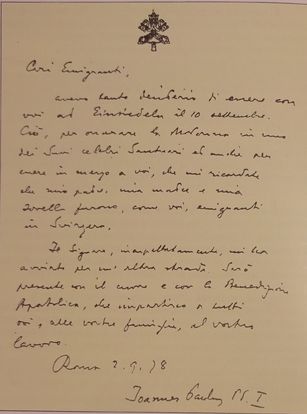 Cari Emigranti,
avevo tanto desiderio di essere con
voi ad Einsiedeln il 10 settembre.
Ciò, per onorare la Madonna in uno
dei Suoi celebri Santuari ed anche per
essere in mezzo a voi, che mi ricordate
che mio padre, mia madre e mia
sorella furono, come voi, emigranti
in Svizzera.
Il Signore, inaspettatamente, mi ha
avviato per un'altra strada. Sarò
presente con il cuore e con la Benedizione
Apostolica, che impartisco a tutti
voi, alle vostre famiglie, al vostro
lavoro.
Roma 2.9.78
Joannes Paulus PP. I